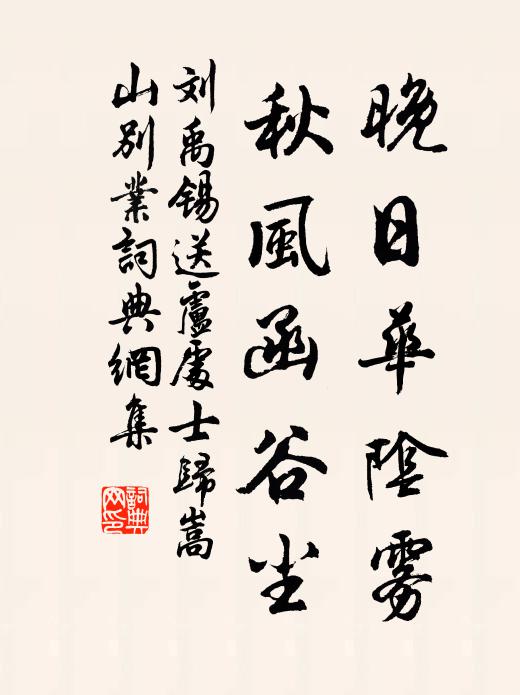 晚日華陰雾
秋風函谷尘
刘禹锡送盧處士歸嵩
山别業詞典網集
詞典网印